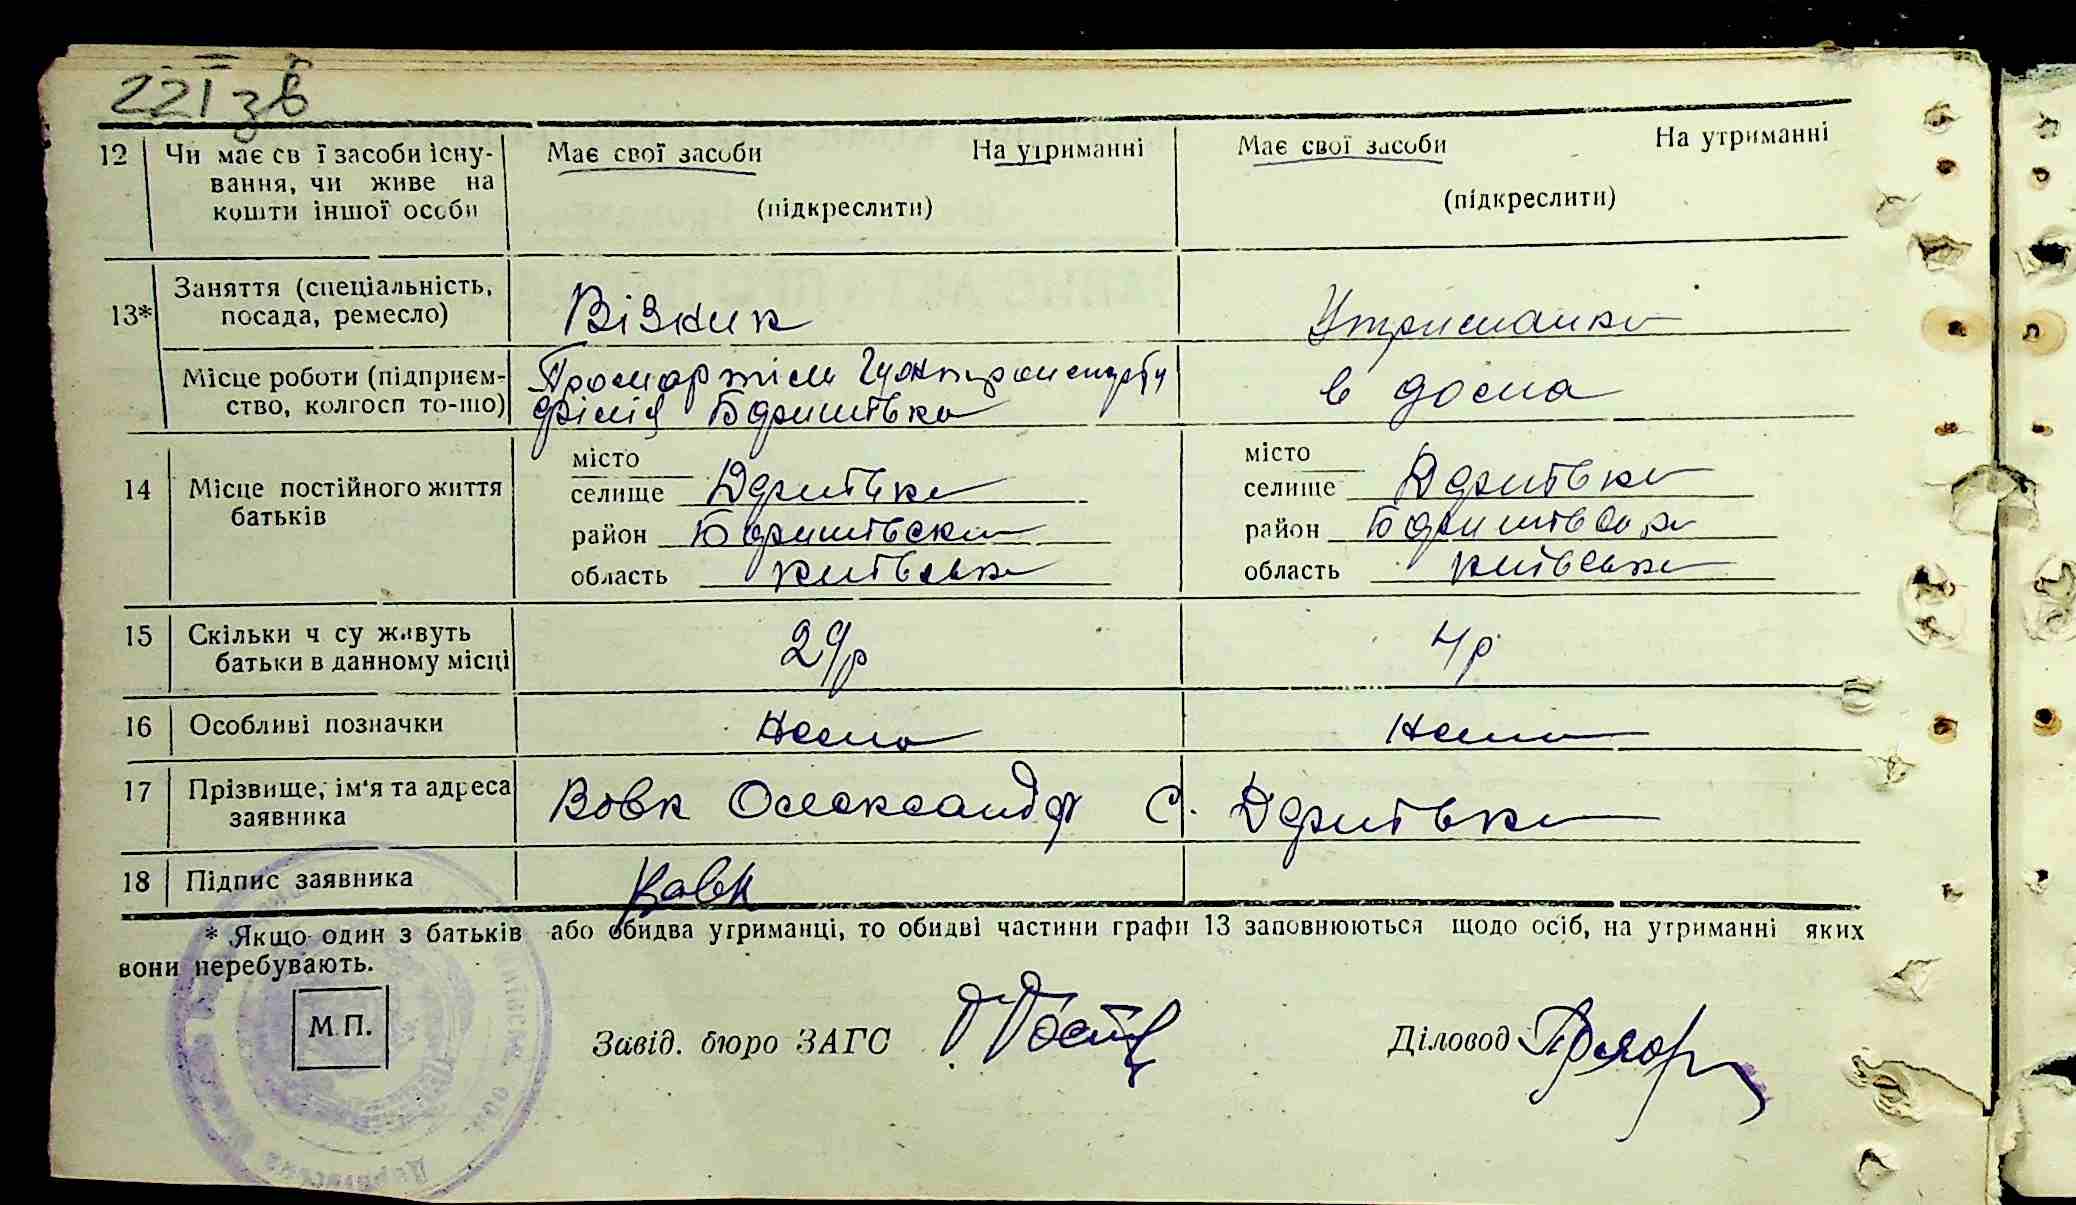 221 зв
12 Чи має св ї засоби існу- Має свої засоби На утриманні Має свої засоби На утриманні
вання, чи живе на
кошти іншої особи (підкреслити) (підкреслити)
13* Заняття (спеціальність, посада, ремесло) Візник Утриманка
Місце роботи (підприєм- Промартіли Гужтранспорту в дома
ство, колгосп то-що) філія
14 Місце постійного життя батьків
місто місто
селище селище
район район
область Київська область Київська
15 Скільки ч су живуть 29р 4р
батьки в данному місці
16 Особливі позначки Нема Нема
17 Прізвище, ім'я та адреса Вовк Олександр С.
заявника
18 Підпис заявника Вовк
* Якщо один з батьків або обидва утриманці, то обидві частини графи 13 заповнюються щодо осіб, на утриманні яких
вони перебувають.
М.П. Завід. бюро ЗАГС Діловод